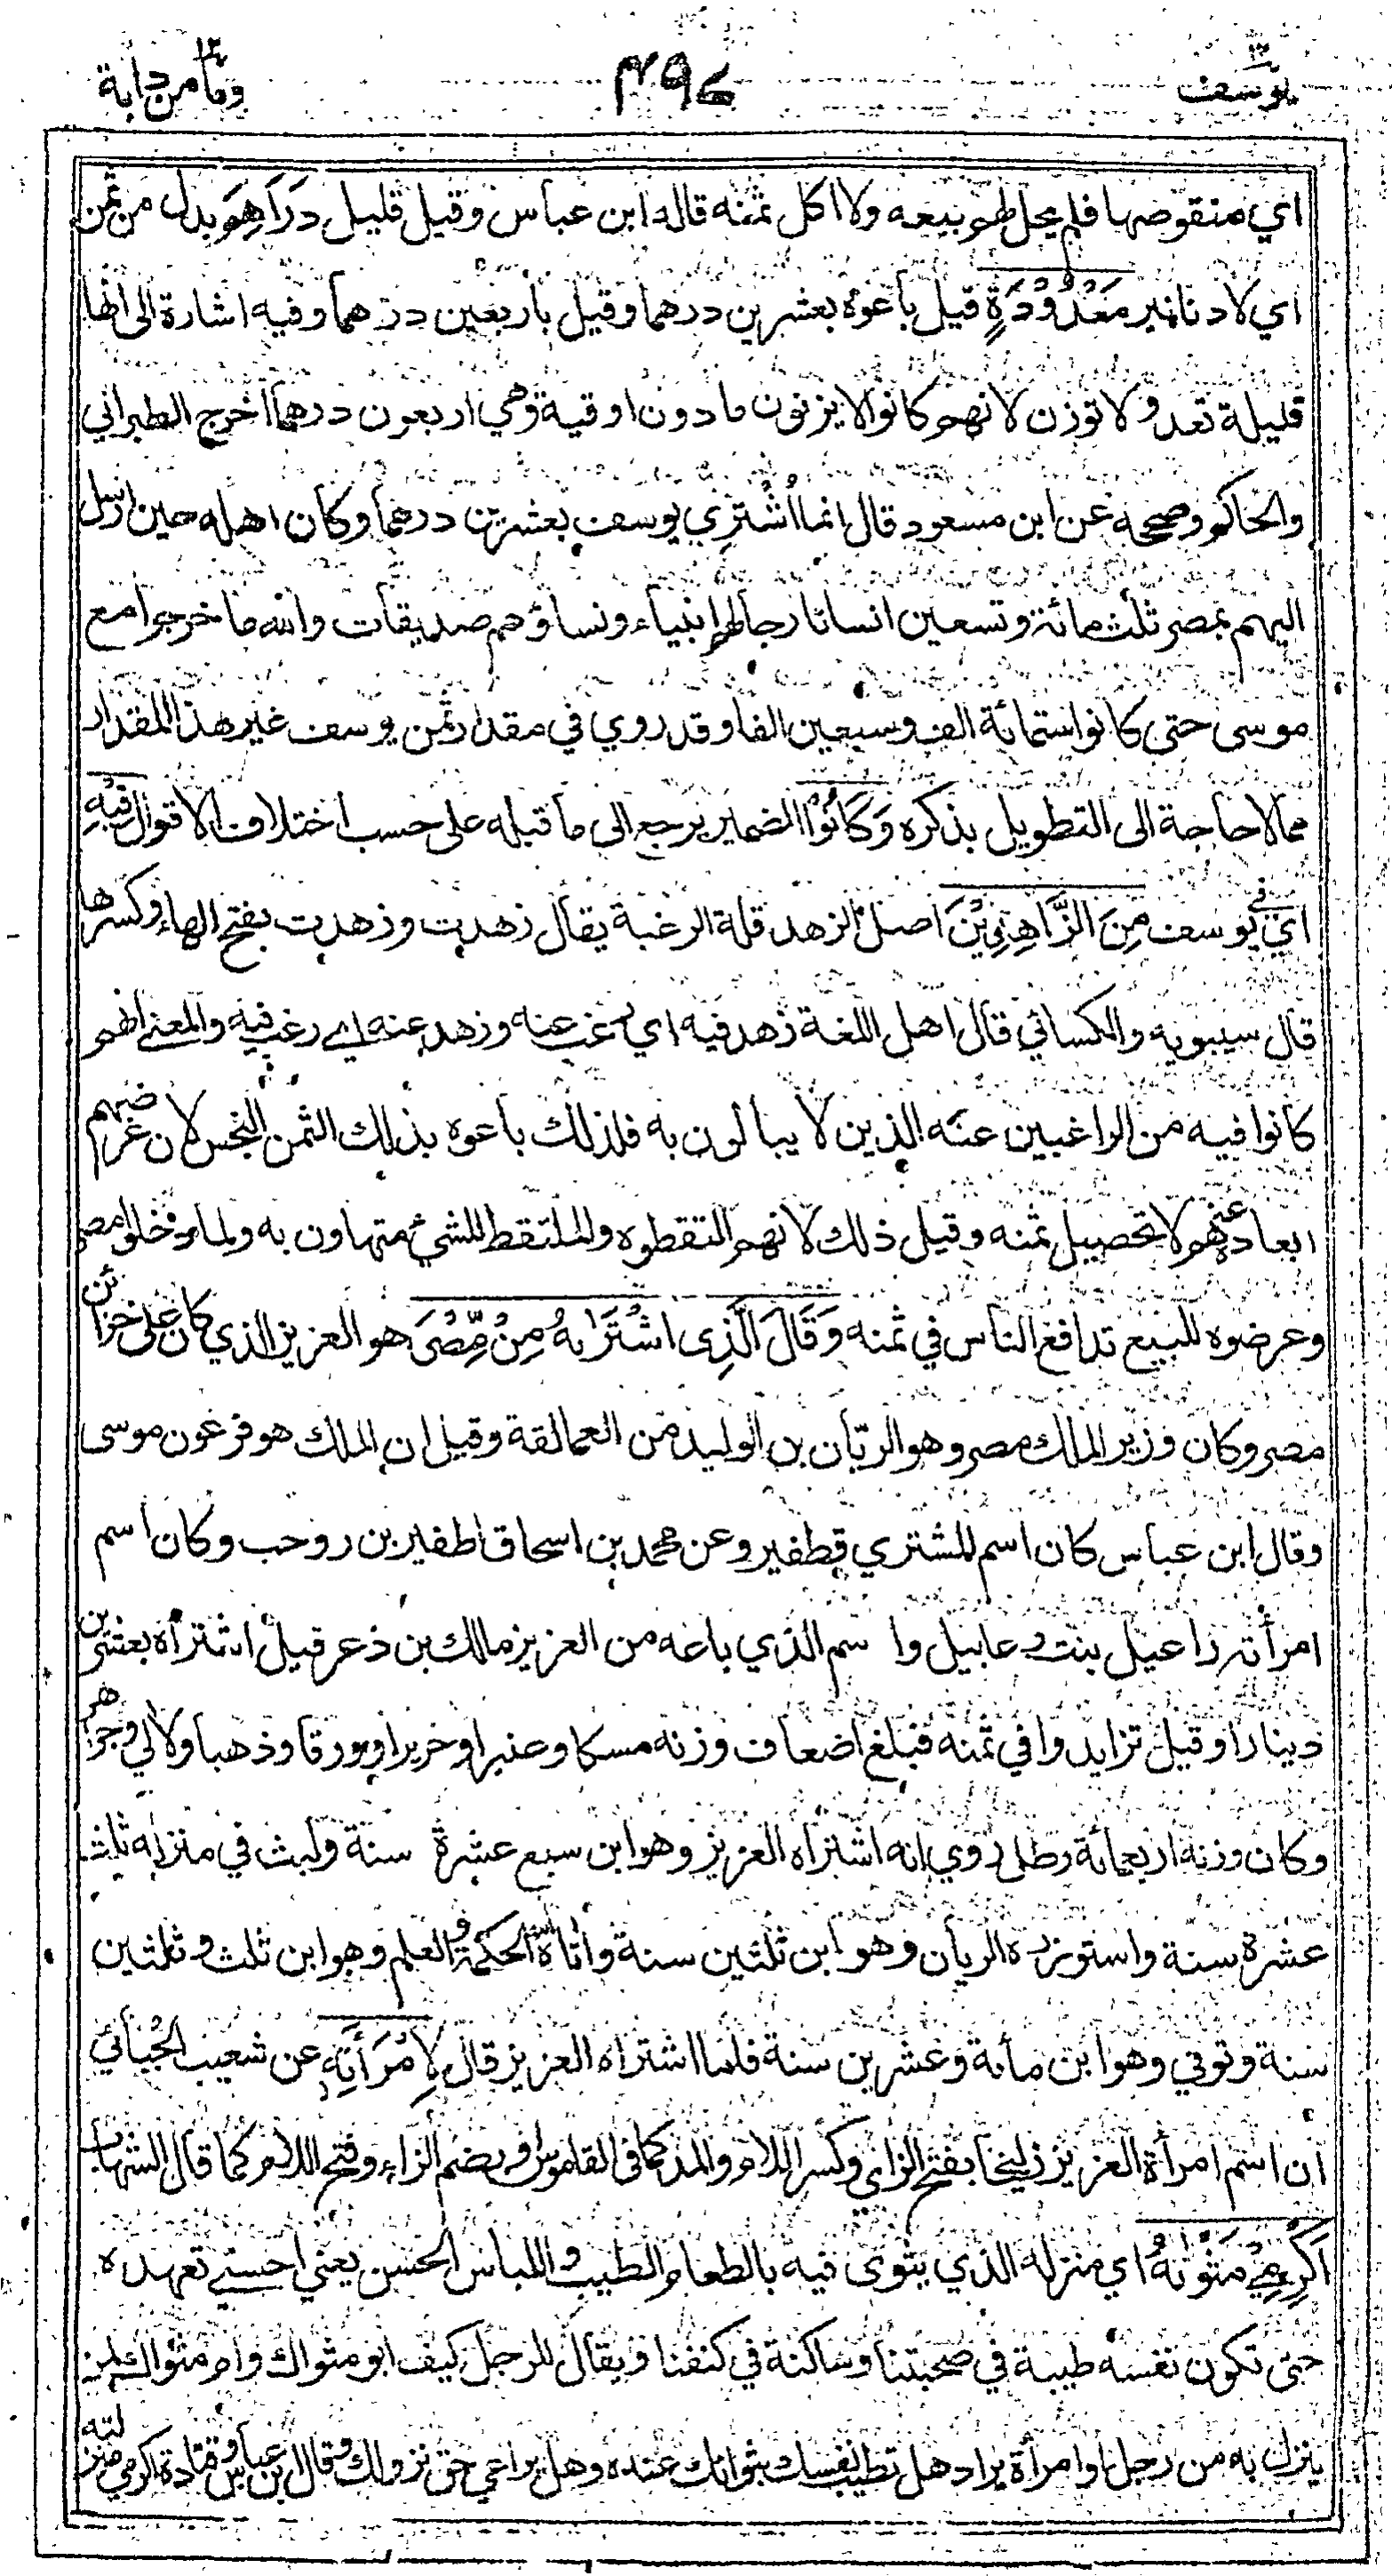 يوسف ١٢
٤٩٧
وما من دابة ١٢
اي منقوصها فلم يحل لهم بيعه ولا اكل ثمنه قاله ابن عباس وقيل قليل دَرَاهِمَ بدل من ثمن
اي لا دنانير مَعْدُوْدَةٍ قيل باعوه بعشرين درهما وقيل باربعين درهما وفيه اشارة الى انها
قليلة تعد ولا توزن لانهم كانوا لا يزنون ما دون اوقية وهي اربعون درهما اخرج الطبراني
والحاكم وصححه عن ابن مسعود قال انما اشتري يوسف بعشرين درهما وكان اهله حين ارسل
اليهم بمصر ثلث مائة وتسعين انسانا رجالهم انبياء ونساؤهم صديقات والله ما خرجوا مع
موسى حتى كانوا ستمائة الف وسبعين الفا وقد روي في مقدار ثمن يوسف غير هذا المقدار
مما لا حاجة الى التطويل بذكره وَكَانُوْا الضمير يرجع الى ما قبله على حسب اختلاف الاقوال فِيْهِ
اي في يوسف مِنَ الزَّاهِدِيْنَ اصل الزهد قلة الرغبة يقال زهدت وزهدت بفتح الهاء وكسرها
قال سيبويه والكسائي قال اهل اللغة زهد فيه اي رغب عنه وزهد عنه اي رغب فيه والمعنى انهم
كانوا فيه من الراغبين عنه الذين لا يبالون به فلذلك باعوه بذلك الثمن البخس لان غرضهم
ابعاده عنهم لا تحصيل ثمنه وقيل ذلك لانهم التقطوه والملتقط للشيء متهاون به ولما دخلوا مصر
وعرضوه للبيع تدافع الناس في ثمنه وَقَالَ الَّذِى اشْتَرَاهُ مِنْ مِّصْرَ هو العزيز الذي كان على خزائن
مصر وكان وزير الملك مصر وهو الريّان بن الوليد من العمالقة وقيل ان الملك هو فرعون موسى
وقال ابن عباس كان اسم المشتري قطفير وعن محمد بن اسحاق اطفير بن روحب وكان اسم
امرأته راعيل بنت رعابيل واسم الذي باعه من العزيز مالك بن ذعر قيل اشتراه بعشرين
دينارا وقيل تزايدوا في ثمنه فبلغ اضعاف وزنه مسكا وعنبرا وحريرا وورقا وذهبا ولآلي وجواهر
وكان وزنه اربعمائة رطل روي انه اشتراه العزيز وهو ابن سبع عشرة سنة ولبث في منزله ثلث
عشرة سنة واستوزره الريان وهو ابن ثلثين سنة وأتاه الله الحكمة والعلم وهو ابن ثلث وثلثين
سنة وتوفي وهو ابن مأية وعشرين سنة فلما اشتراه العزيز قال لِامْرَأَتِهٖ عن شعيب الجبائي
ان اسم امرأة العزيز زليخا بفتح الزاي وكسر اللام والمد كما في القاموس او بضم الزاء وفتح اللام كما قال الشهاب
اَكْرِمِيْ مَثْوٰىهُ اي منزله الذي يثوى فيه بالطعام الطيب واللباس الحسن يعني احسني تعهده
حتى تكون نفسه طيبة في صحبتنا وساكنة في كنفنا ويقال للرجل كيف ابو مثواك وام مثواك لمن
ينزل به من رجل او امرأة يراد هل تطيب نفسك بثوائك عنده وهل يراعي حق نزولك وقال ابن عباس وقتادة اكرمي منزلته